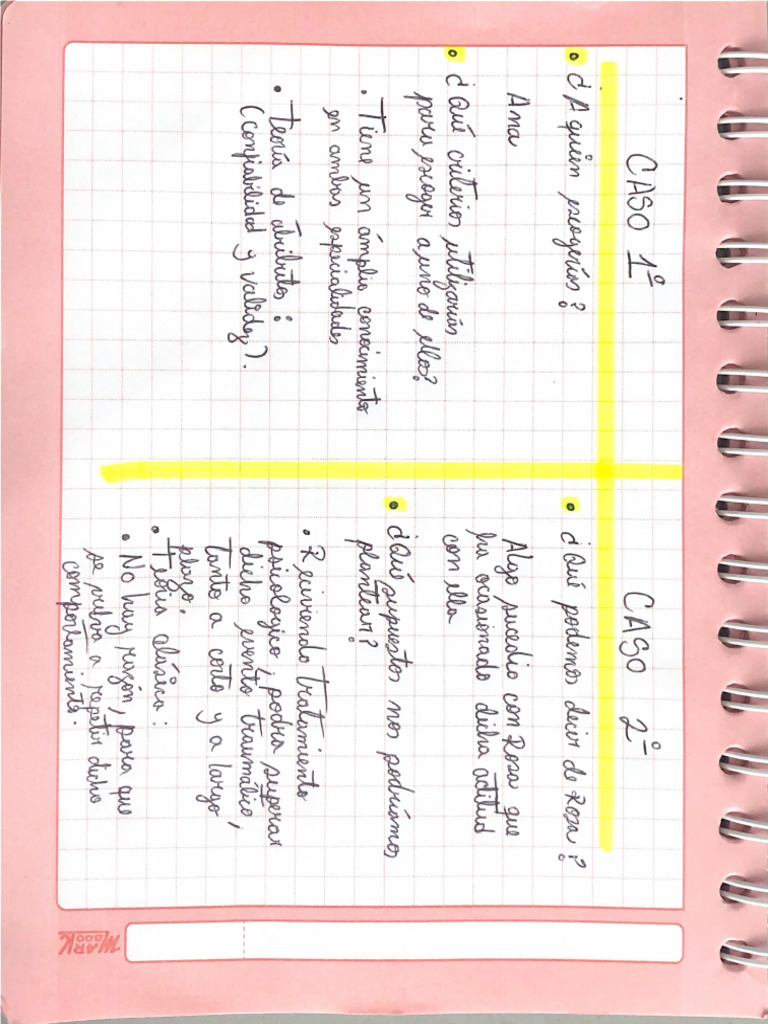 CASO 1º
• ¿A quién escogerías?
Ana
• ¿Qué criterios utilizarías
para escoger a uno de ellos?
• Tiene un ámplio conocimiento
en ambas especialidades
• Teoría de atributos:
(confiabilidad y validez).
CASO 2º
• ¿Qué podemos decir de Rosa?
Algo sucedio con Rosa que
ha ocasionado dicha actitud
con ella
• ¿Qué supuestos nos podríamos
plantear?
• Reciviendo tratamiento
psicologico, podra superar
dicho evento traumático,
tanto a corto y a largo
plazo.
• Teoria clásica:
• No hay razón, para que
se vuelva a repetir dicho
comportamiento.
MARK